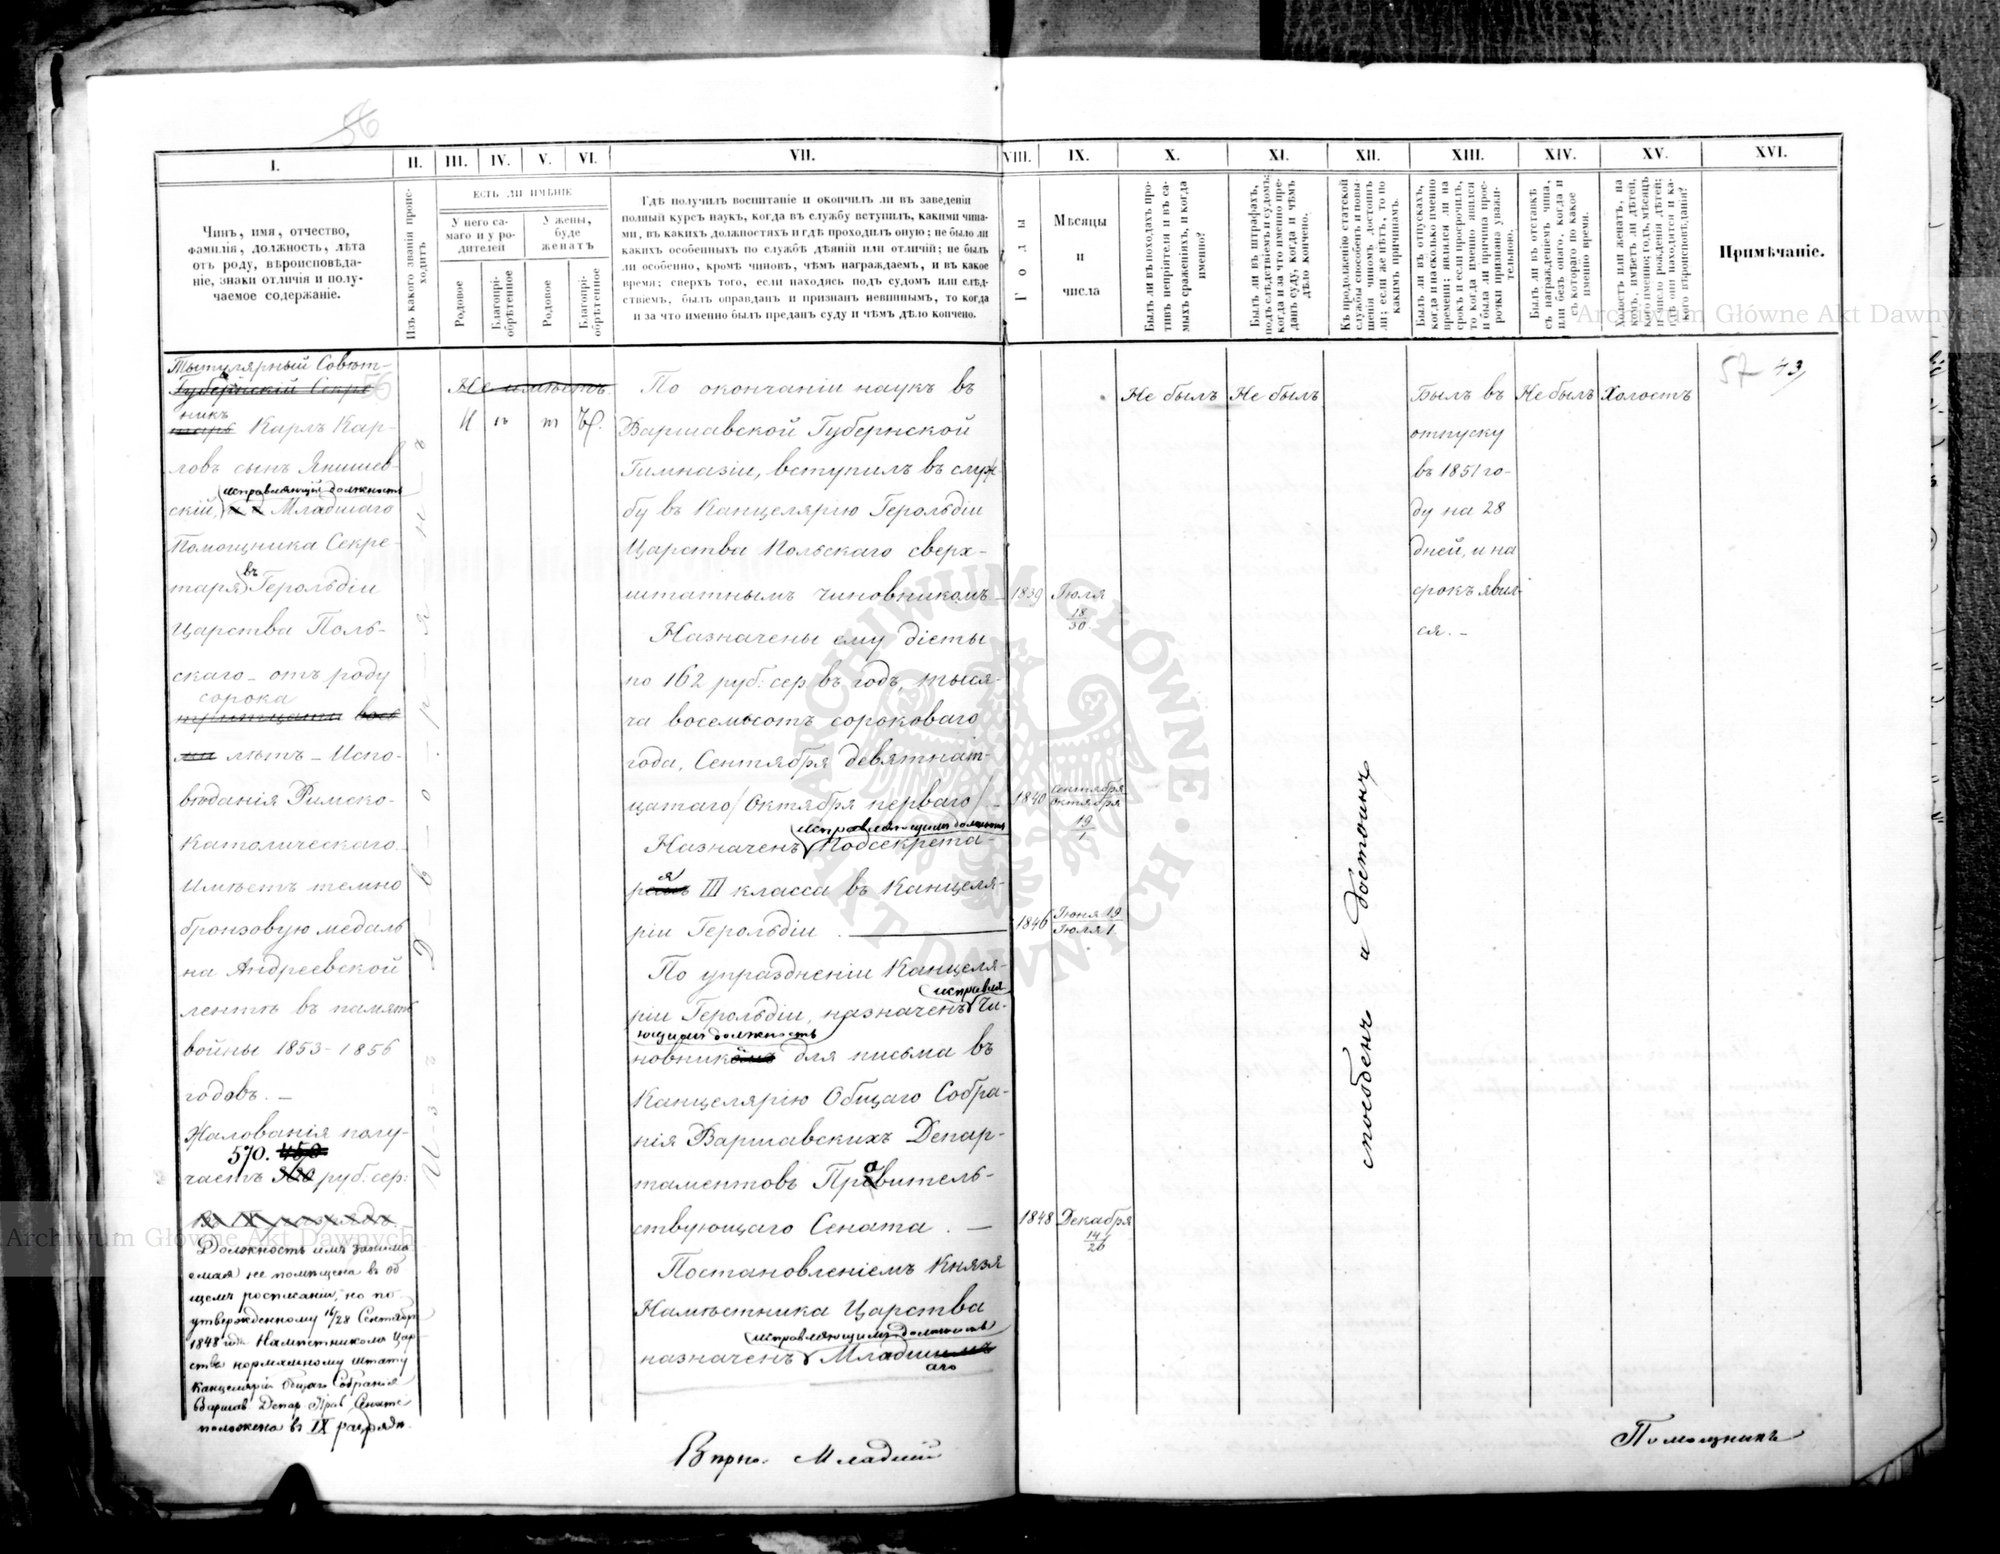 56
I.
II.
III.
IV.
V.
VI.
VII.
VIII.
IX.
X.
XI.
XII.
XIII.
XIV.
XV.
XVI.
Чинъ, имя, отчество,
фамилія, должность, лѣта
отъ роду, вѣроисповѣда-
ніе, знаки отличія и полу-
чаемое содержаніе.
Изъ какого званія проис-
ходитъ.
ЕСТЬ ЛИ ИМѢНІЕ
У него са-
маго и у ро-
дителей
У жены,
буде
женатъ
Родовое
Благопрі-
обрѣтенное
Родовое
Благопрі-
обрѣтенное
Гдѣ получилъ воспитаніе и окончилъ ли въ заведеніи
полный курсъ наукъ, когда въ службу вступилъ, какими чина-
ми, въ какихъ должностяхъ и гдѣ проходилъ оную; не было ли
какихъ особенныхъ по службѣ дѣяній или отличій; не былъ
ли особенно, кромѣ чиновъ, чѣмъ награждаемъ, и въ какое
время; сверхъ того, если находясь подъ судомъ или слѣд-
ствіемъ, былъ оправданъ и признанъ невиннымъ, то когда
и за что именно былъ преданъ суду и чѣмъ дѣло кончено.
Годы
Мѣсяцы
и
числа
Былъ ли въ походахъ про-
тивъ непріятеля и въ са-
мыхъ сраженіяхъ, и когда
именно?
Былъ ли въ штрафахъ,
подъ слѣдствіемъ и судомъ;
когда и за что именно пре-
данъ суду, когда и чѣмъ
дѣло кончено.
Къ продолженію статской
службы способенъ и повы-
шенія чиномъ достоинъ
ли; если же нѣтъ, то по
какимъ причинамъ.
Былъ ли въ отпускахъ,
когда и насколько именно
времени; являлся ли на
срокъ и если просрочилъ,
то когда именно явился
и была ли причина прос-
рочки признана уважи-
тельною.
Былъ ли въ отставкѣ
съ награжденіемъ чина,
или безъ онаго, когда и
съ котораго по какое
именно время.
Холостъ или женатъ, на
комъ, имѣетъ ли дѣтей,
кого именно; годъ, мѣсяцъ
и число рожденія дѣтей;
гдѣ они находятся и ка-
кого вѣроисповѣданія?
Примѣчаніе.
Archiwum Główne Akt Dawnych
Титулярный Совѣт-
Губернскій Секре 56
никъ
тарь Карлъ Кар-
ловъ сынъ Янишев-
исправляющій должность
скій, Младшаго
Помощника Секре-
въ
таря Герольдіи
Царства Поль-
скаго – отъ роду
сорока
тридцати восъ
ми лѣтъ – Испо-
вѣданія Римско-
Католическаго.
Имѣетъ темно
бронзовую медаль
на Андреевской
лентѣ въ память
войны 1853-1856
годовъ. –
Жалованія полу-
570. 450
чаетъ 300 руб: сер:
Должность имъ занима
емая не помѣщена въ об
щемъ росписаніи, но по
утвержденному 16/28 Сентября
1848 года Намѣстникомъ Цар-
ства нормальному штату
Канцеляріи Общаго Собранія
Варшав. Депар. Прав. Сената
положена въ IX разрядѣ.
И-з-ъ Д-в-о-р-я-н-ъ
Не имѣетъ
Н ѣ т ъ.
По окончаніи наукъ въ
Варшавской Губернской
Гимназіи, вступилъ въ служ-
бу въ Канцелярію Герольдіи
Царства Польскаго сверх-
штатнымъ чиновникомъ – 1839 Іюля 18/30
Назначены ему діеты
по 162 руб: сер: въ годъ, тыся-
ча восемьсотъ сороковаго
года, Сентября девятнад-
цатаго / Октября перваго / – 1840 Сентября/Октября 19/1
исправляющимъ должность
Назначенъ Подсекрета-
ря III класса въ Канцеля-
ріи Герольдіи. 1846 Іюня 19/Іюля 1
По упраздненіи Канцеля-
исправля
ріи Герольдіи, назначенъ Чи-
ющимъ должность
новникомъ для письма въ
Канцелярію Общаго Собра-
нія Варшавскихъ Депар-
таментовъ Правитель-
ствующаго Сената. – 1848 Декабря 14/26
Постановленіемъ Князя
Намѣстника Царства
исправляющимъ должность
назначенъ Младшимъ
аго
Не былъ
Не былъ
способенъ и достоинъ
Былъ въ
отпуску
въ 1851 го-
ду на 28
дней, и на
срокъ явил-
ся. –
Не былъ
Холостъ
57 43
ARCHIWUM GŁÓWNE AKT DAWNYCH
Archiwum Główne Akt Dawnych
Вѣрно. Младшій
Помощникъ